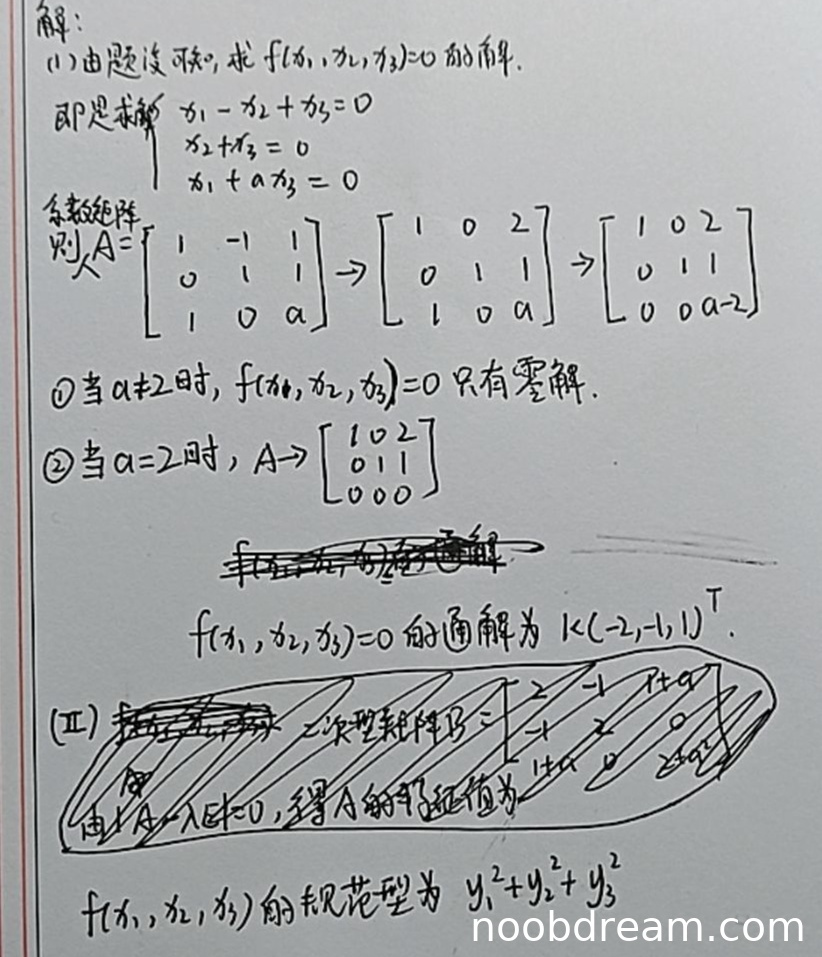 解:
(1) 由题设可知, 求 f(x₁, x₂, x₃)=0 的解.
即是求解 { x₁ - x₂ + x₃ = 0
x₂ + x₃ = 0
x₁ + a x₃ = 0
系数矩阵
则 A = [1 -1 1; 0 1 1; 1 0 a] → [1 0 2; 0 1 1; 1 0 a] → [1 0 2; 0 1 1; 0 0 a-2]
① 当 a≠2 时, f(x₁, x₂, x₃)=0 只有零解.
② 当 a=2 时, A → [1 0 2; 0 1 1; 0 0 0]
f(x₁, x₂, x₃)=0 的通解为 k(-2, -1, 1)ᵀ.
(II) 二次型矩阵 B = [2 -1 1+a; -1 2 0; 1+a 0 2+a²]
由|A-λE|=0, 得A的特征值为
f(x₁, x₂, x₃) 的规范型为 y₁²+y₂²+y₃²
noobdream.com